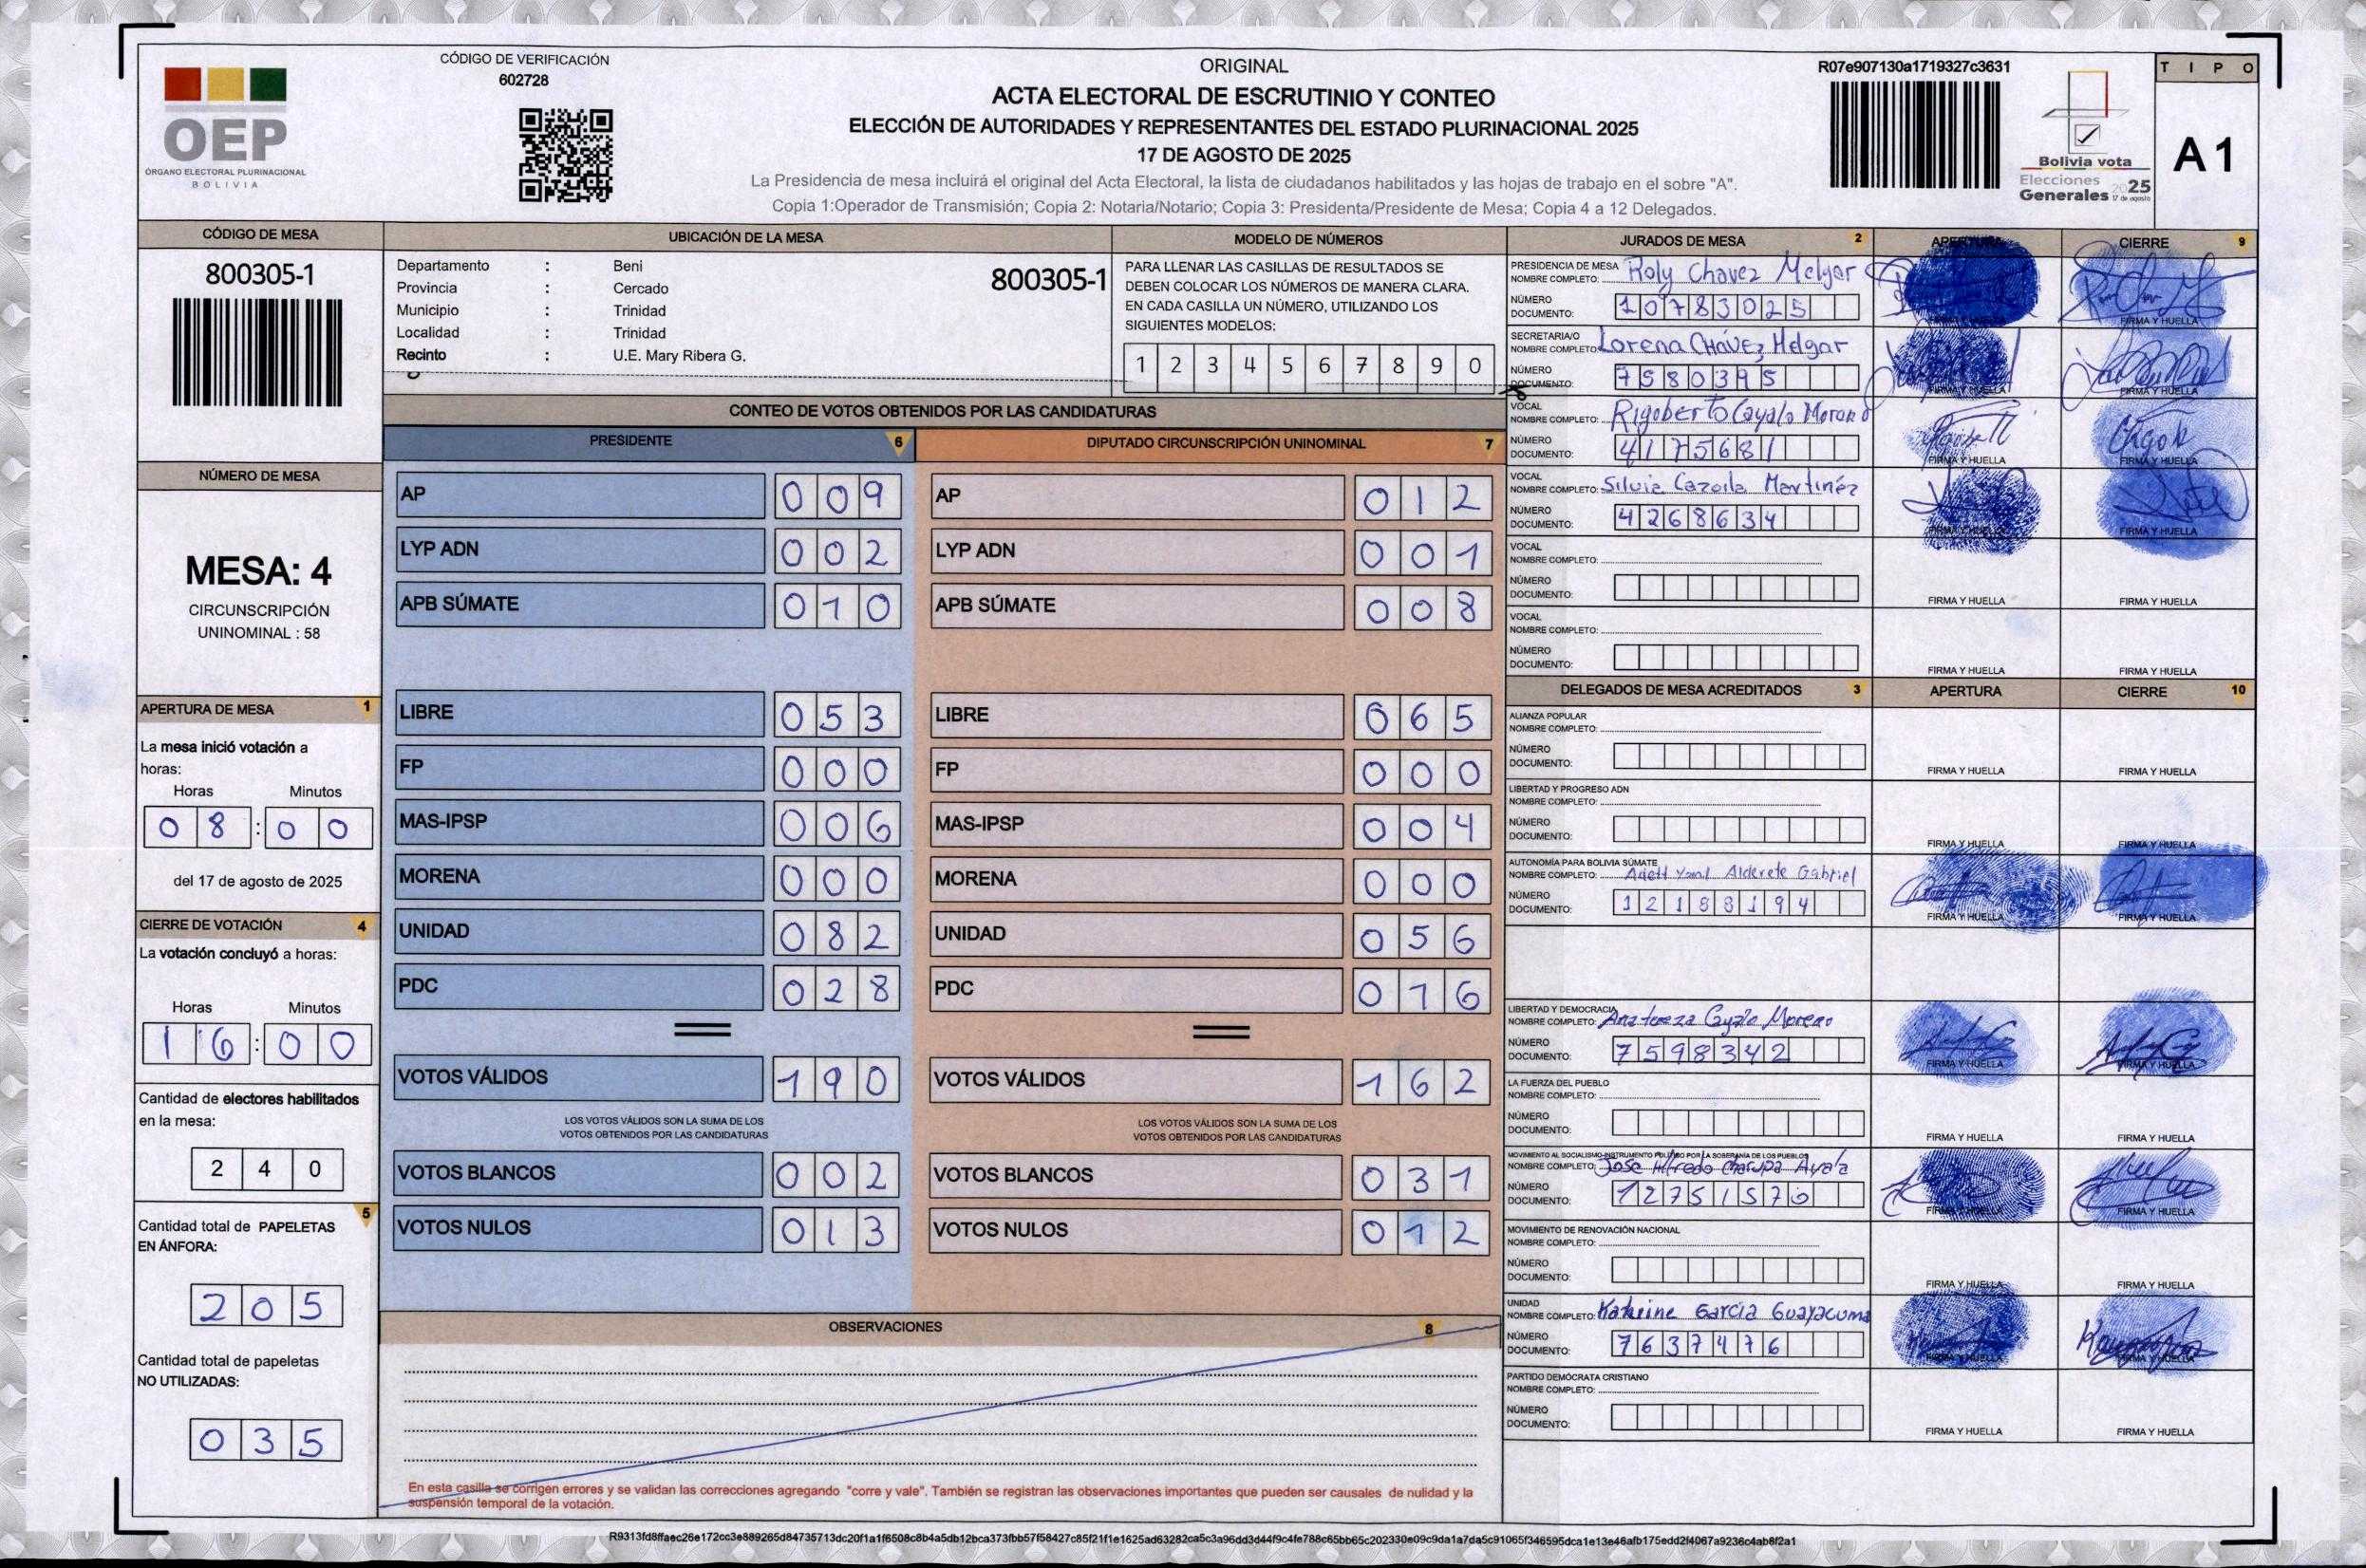 CÓDIGO DE VERIFICACIÓN
602728
OEP
ÓRGANO ELECTORAL PLURINACIONAL
BOLIVIA
ORIGINAL
ACTA ELECTORAL DE ESCRUTINIO Y CONTEO
ELECCIÓN DE AUTORIDADES Y REPRESENTANTES DEL ESTADO PLURINACIONAL 2025
17 DE AGOSTO DE 2025
La Presidencia de mesa incluirá el original del Acta Electoral, la lista de ciudadanos habilitados y las hojas de trabajo en el sobre "A".
Copia 1:Operador de Transmisión; Copia 2: Notaria/Notario; Copia 3: Presidenta/Presidente de Mesa; Copia 4 a 12 Delegados.
R07e907130a1719327c3631
Bolivia vota
Elecciones
Generales 2025
17 de agosto
TIPO
A1
CÓDIGO DE MESA
800305-1
UBICACIÓN DE LA MESA
Departamento : Beni
Provincia : Cercado
Municipio : Trinidad
Localidad : Trinidad
Recinto : U.E. Mary Ribera G.
800305-1
MODELO DE NÚMEROS
PARA LLENAR LAS CASILLAS DE RESULTADOS SE
DEBEN COLOCAR LOS NÚMEROS DE MANERA CLARA.
EN CADA CASILLA UN NÚMERO, UTILIZANDO LOS
SIGUIENTES MODELOS:
1 2 3 4 5 6 7 8 9 0
NÚMERO DE MESA
MESA: 4
CIRCUNSCRIPCIÓN
UNINOMINAL : 58
APERTURA DE MESA 1
La mesa inició votación a
horas:
Horas Minutos
08:00
del 17 de agosto de 2025
CIERRE DE VOTACIÓN 4
La votación concluyó a horas:
Horas Minutos
16:00
Cantidad de electores habilitados
en la mesa:
240
5
Cantidad total de PAPELETAS
EN ÁNFORA:
205
Cantidad total de papeletas
NO UTILIZADAS:
035
CONTEO DE VOTOS OBTENIDOS POR LAS CANDIDATURAS
PRESIDENTE 6
AP 009
LYP ADN 002
APB SÚMATE 010
LIBRE 053
FP 000
MAS-IPSP 006
MORENA 000
UNIDAD 082
PDC 028
VOTOS VÁLIDOS 190
LOS VOTOS VÁLIDOS SON LA SUMA DE LOS
VOTOS OBTENIDOS POR LAS CANDIDATURAS
VOTOS BLANCOS 002
VOTOS NULOS 013
DIPUTADO CIRCUNSCRIPCIÓN UNINOMINAL 7
AP 012
LYP ADN 001
APB SÚMATE 008
LIBRE 065
FP 000
MAS-IPSP 004
MORENA 000
UNIDAD 056
PDC 016
VOTOS VÁLIDOS 162
LOS VOTOS VÁLIDOS SON LA SUMA DE LOS
VOTOS OBTENIDOS POR LAS CANDIDATURAS
VOTOS BLANCOS 031
VOTOS NULOS 012
OBSERVACIONES 8
En esta casilla se corrigen errores y se validan las correcciones agregando "corre y vale". También se registran las observaciones importantes que pueden ser causales de nulidad y la
suspensión temporal de la votación.
JURADOS DE MESA 2 APERTURA CIERRE 9
PRESIDENCIA DE MESA
NOMBRE COMPLETO: Roly Chavez Melgar
NÚMERO
DOCUMENTO: 10783025
FIRMA Y HUELLA FIRMA Y HUELLA
SECRETARIA/O
NOMBRE COMPLETO: Lorena Chávez Melgar
NÚMERO
DOCUMENTO: 7580395
FIRMA Y HUELLA FIRMA Y HUELLA
VOCAL
NOMBRE COMPLETO: Rigoberto Cayalo Moreno
NÚMERO
DOCUMENTO: 4175681
FIRMA Y HUELLA FIRMA Y HUELLA
VOCAL
NOMBRE COMPLETO: Silvia Martinéz
NÚMERO
DOCUMENTO: 4268634
FIRMA Y HUELLA FIRMA Y HUELLA
VOCAL
NOMBRE COMPLETO:
NÚMERO
DOCUMENTO:
FIRMA Y HUELLA FIRMA Y HUELLA
VOCAL
NOMBRE COMPLETO:
NÚMERO
DOCUMENTO:
FIRMA Y HUELLA FIRMA Y HUELLA
DELEGADOS DE MESA ACREDITADOS 3 APERTURA CIERRE 10
ALIANZA POPULAR
NOMBRE COMPLETO:
NÚMERO
DOCUMENTO:
FIRMA Y HUELLA FIRMA Y HUELLA
LIBERTAD Y PROGRESO ADN
NOMBRE COMPLETO:
NÚMERO
DOCUMENTO:
FIRMA Y HUELLA FIRMA Y HUELLA
AUTONOMÍA PARA BOLIVIA SÚMATE
NOMBRE COMPLETO: Alderete Gabriel
NÚMERO
DOCUMENTO: 12188194
FIRMA Y HUELLA FIRMA Y HUELLA
LIBERTAD Y DEMOCRACIA
NOMBRE COMPLETO: Moreno
NÚMERO
DOCUMENTO: 7598342
FIRMA Y HUELLA FIRMA Y HUELLA
LA FUERZA DEL PUEBLO
NOMBRE COMPLETO:
NÚMERO
DOCUMENTO:
FIRMA Y HUELLA FIRMA Y HUELLA
MOVIMIENTO AL SOCIALISMO-INSTRUMENTO POLÍTICO POR LA SOBERANÍA DE LOS PUEBLOS
NOMBRE COMPLETO: Jose Alfredo Charupa Ayala
NÚMERO
DOCUMENTO: 12751570
FIRMA Y HUELLA FIRMA Y HUELLA
MOVIMIENTO DE RENOVACIÓN NACIONAL
NOMBRE COMPLETO:
NÚMERO
DOCUMENTO:
FIRMA Y HUELLA FIRMA Y HUELLA
UNIDAD
NOMBRE COMPLETO: Katerine Garcia Guayacuma
NÚMERO
DOCUMENTO: 7637476
FIRMA Y HUELLA FIRMA Y HUELLA
PARTIDO DEMÓCRATA CRISTIANO
NOMBRE COMPLETO:
NÚMERO
DOCUMENTO:
FIRMA Y HUELLA FIRMA Y HUELLA